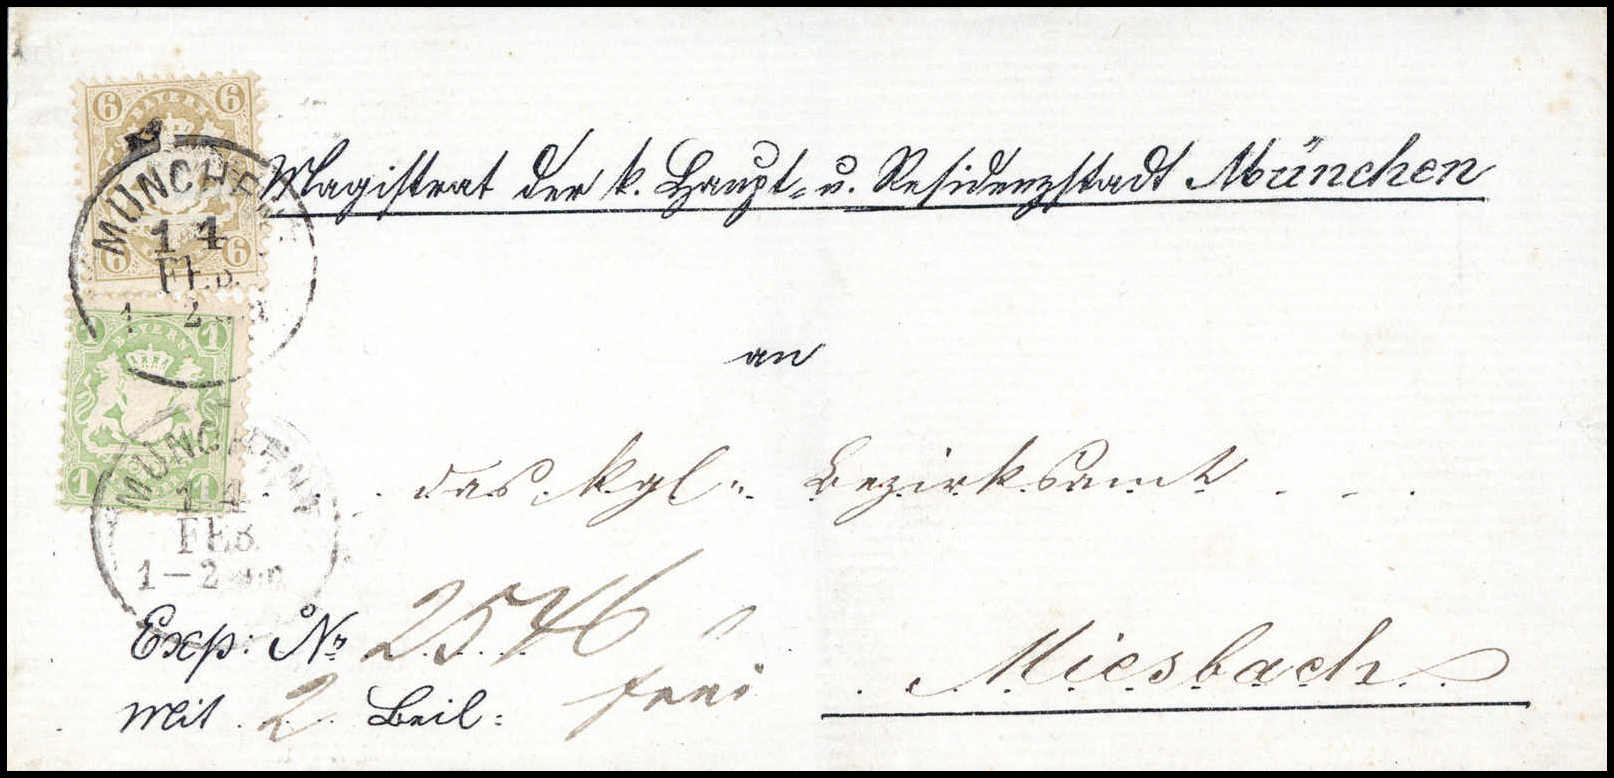 6 6
BAYERN
MÜNCHEN
14
FEB.
1-2
6 6
Magistrat der k. Haupt- u. Residenzstadt München
1 1
BAYERN
an
MÜNCHEN
14
FEB.
1-2
1 1
das kgl: Bezirksamt
Exp: No 2546
Miesbach
Mit 2 Beil: frei